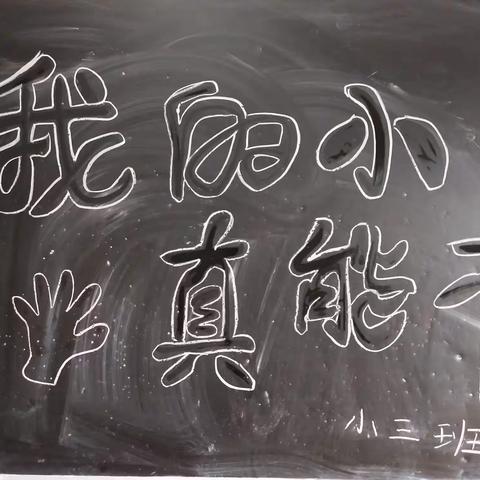 我的小
真能
小三班